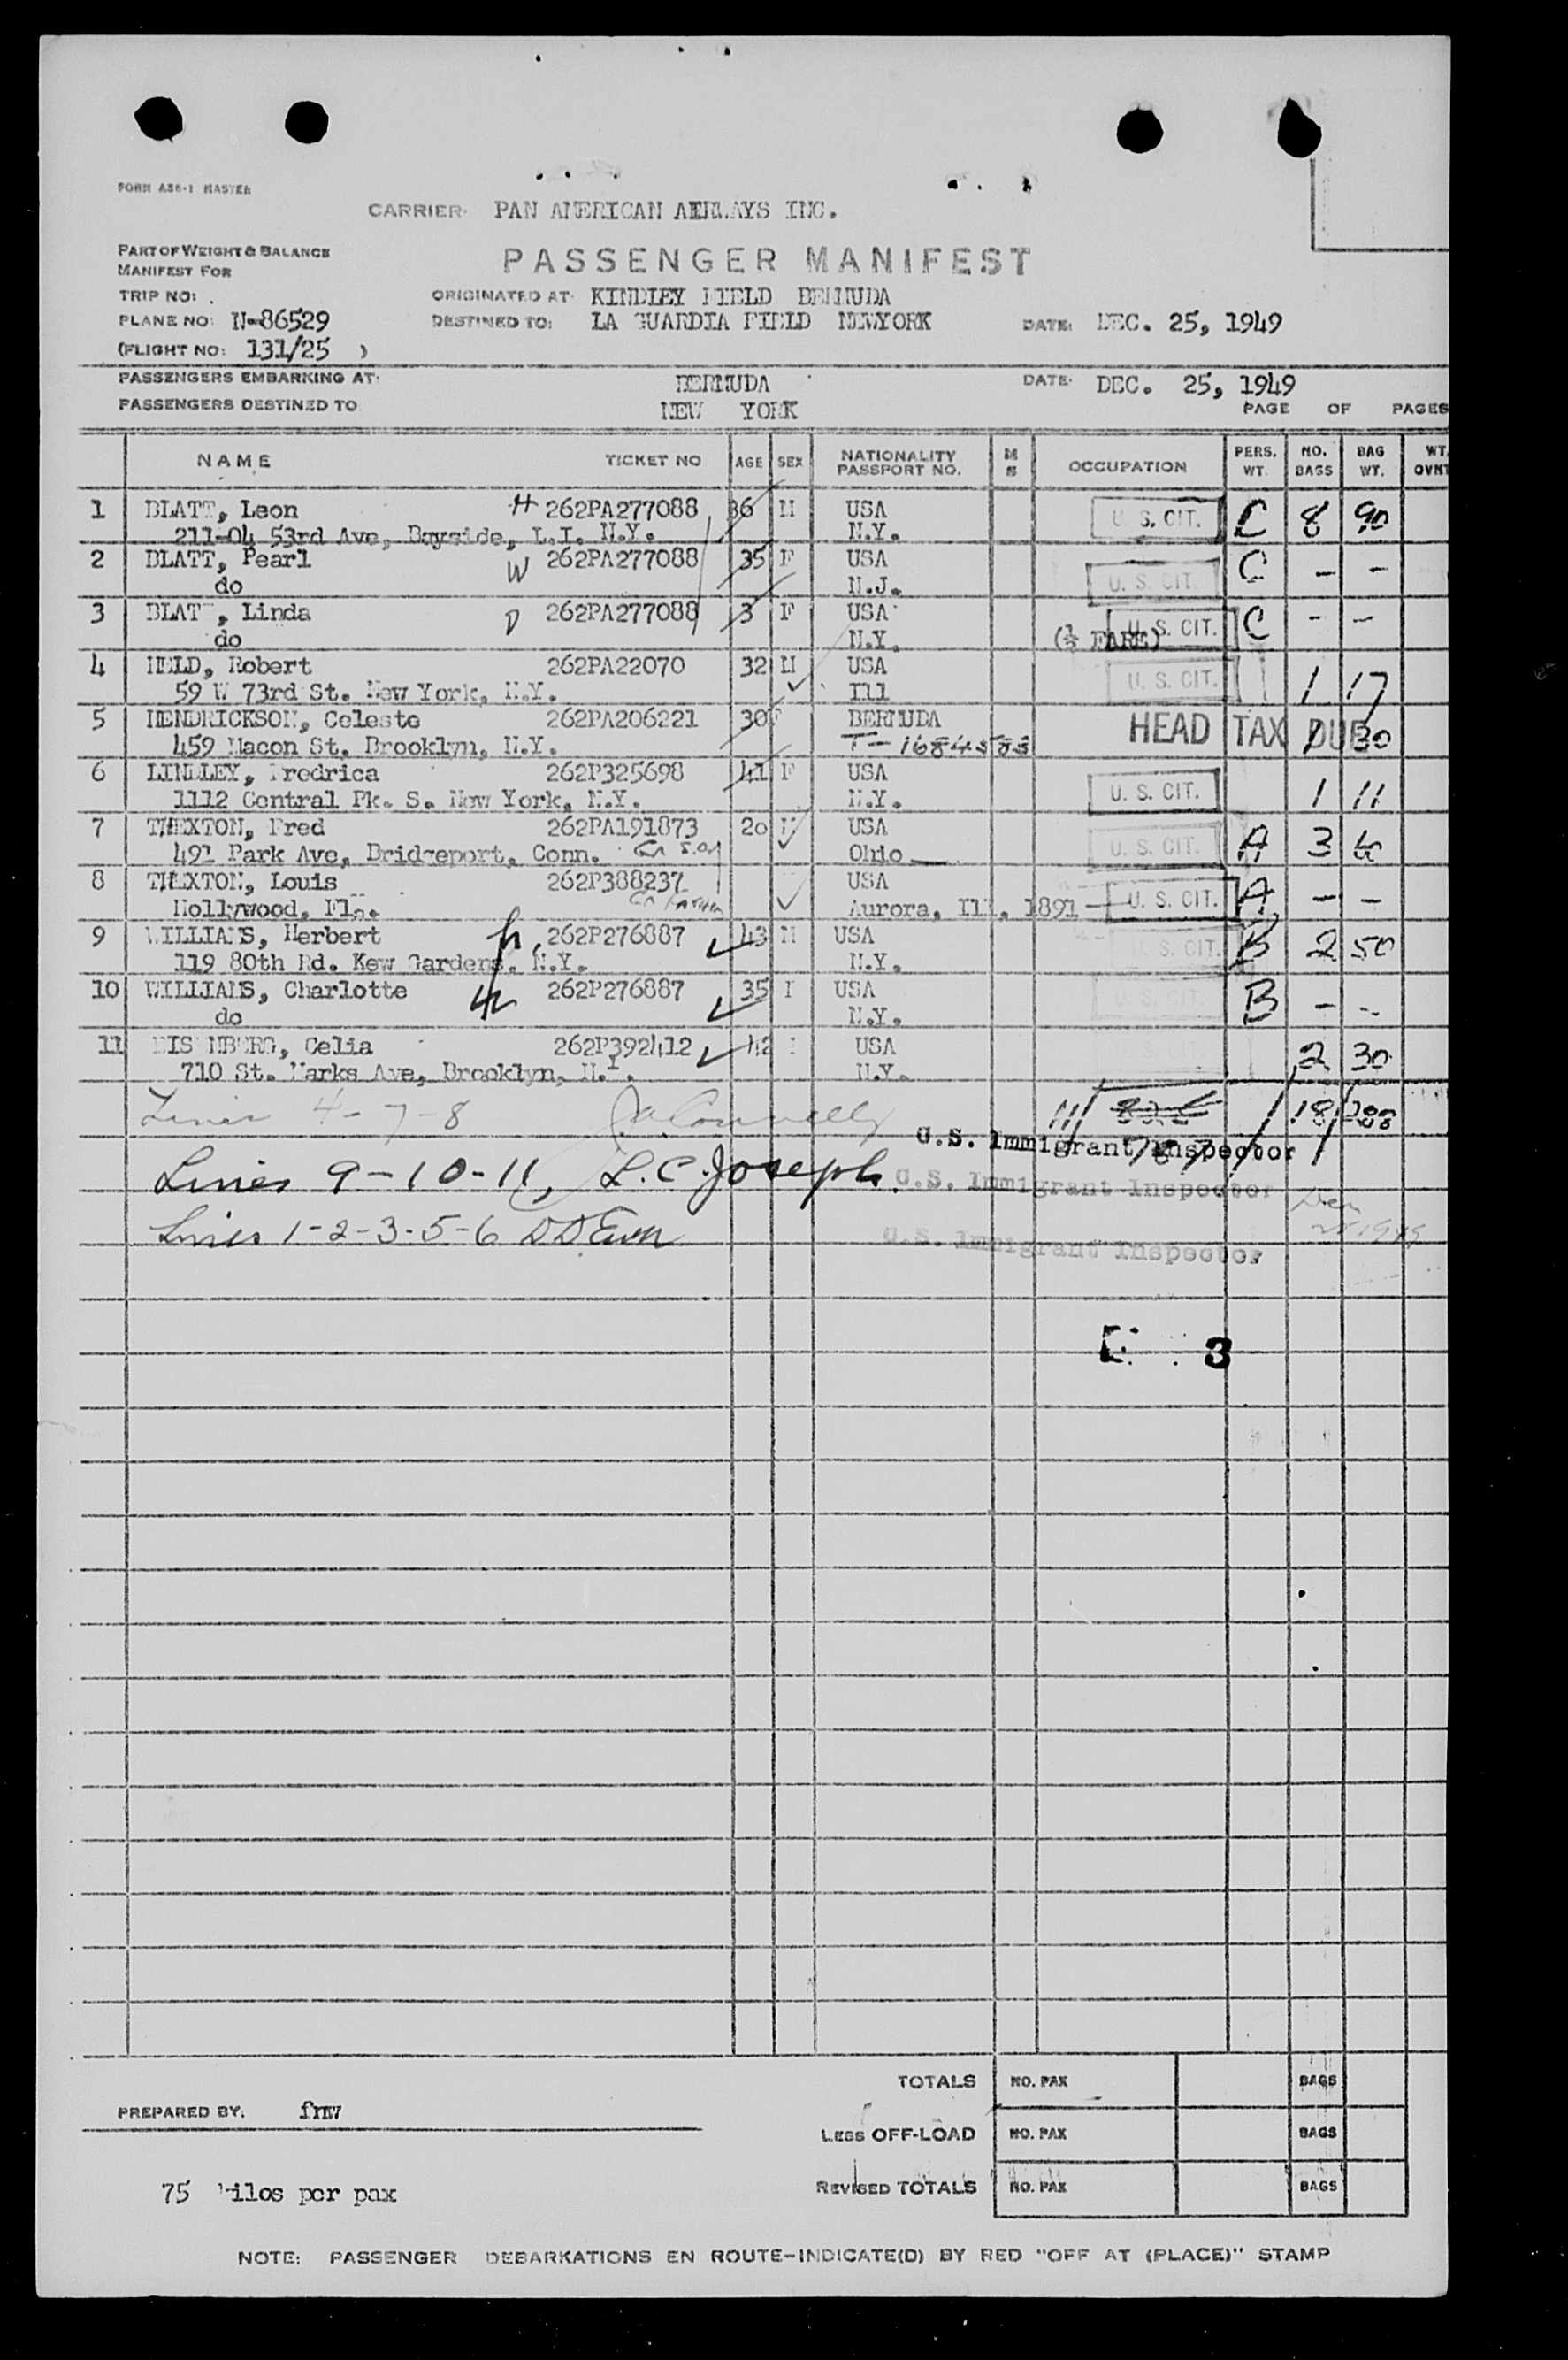 FORM A36-1 MASTER
CARRIER: PAN AMERICAN AIRWAYS INC.
PART OF WEIGHT & BALANCE
MANIFEST FOR
PASSENGER MANIFEST
TRIP NO:
ORIGINATED AT: KINDLEY FIELD BERMUDA
PLANE NO: N-86529
DESTINED TO: LA GUARDIA FIELD NEWYORK DATE: DEC. 25, 1949
(FLIGHT NO: 131/25 )
PASSENGERS EMBARKING AT: BERMUDA DATE: DEC. 25, 1949
PASSENGERS DESTINED TO NEW YORK PAGE OF PAGES
NAME TICKET NO AGE SEX NATIONALITY PASSPORT NO. M S OCCUPATION PERS. WT. NO. BAGS BAG WT. WT. OVNT
1 BLATT, Leon H 262PA277088 36 M USA U. S. CIT. C 8 90
211-04 53rd Ave, Bayside, L.I. N.Y. N.Y.
2 BLATT, Pearl W 262PA277088 35 F USA U. S. CIT. C - -
do N.J.
3 BLATT, Linda D 262PA277088 3 F USA U. S. CIT. C - -
do N.Y. (½ FARE)
4 HELD, Robert 262PA22070 32 M USA U. S. CIT. 1 17
59 W 73rd St. New York, N.Y. Ill
5 HENDRICKSON, Celeste 262PA206221 30 F BERMUDA HEAD TAX DUE 1 30
459 Macon St. Brooklyn, N.Y. T-1684583
6 LINDLEY, Fredrica 262P325698 41 F USA U. S. CIT. 1 11
1112 Central Pk. S. New York, N.Y. N.Y.
7 THEXTON, Fred 262PA191873 20 M USA U. S. CIT. A 3
491 Park Ave, Bridgeport, Conn. Son Ohio
8 THEXTON, Louis 262P388237 USA U. S. CIT. A - -
Hollywood, Fla. Father Aurora, Ill. 1891
9 WILLIAMS, Herbert h 262P276887 43 M USA U. S. CIT. B 2 50
119 80th Rd. Kew Gardens. N.Y. N.Y.
10 WILLIAMS, Charlotte W 262P276887 35 F USA U. S. CIT. B - -
do N.Y.
11 EISENBERG, Celia 262P392412 42 F USA 2 30
710 St. Marks Ave, Brooklyn, N.Y. N.Y.
Lines 4-7-8 Connelly 11 18
U.S. Immigrant Inspector
Lines 9-10-11, L.C. Joseph U.S. Immigrant Inspector
Lines 1-2-3-5-6 U.S. Immigrant Inspector
3
TOTALS NO. PAX BAGS
PREPARED BY. fmw
LESS OFF-LOAD NO. PAX BAGS
75 kilos per pax
REVISED TOTALS NO. PAX BAGS
NOTE: PASSENGER DEBARKATIONS EN ROUTE-INDICATE(D) BY RED "OFF AT (PLACE)" STAMP